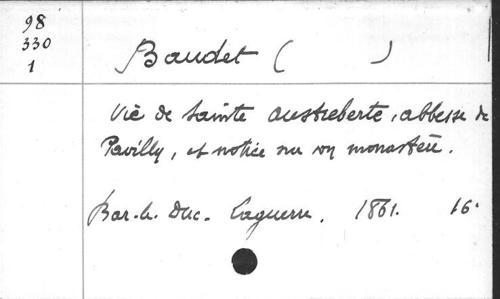 98
330
1
Baudet ( )
Vie de Sainte Austreberte, abbesse de
Pavilly, et notice sur son monastère.
Bar-le-Duc. Laguerre. 1861. 16°